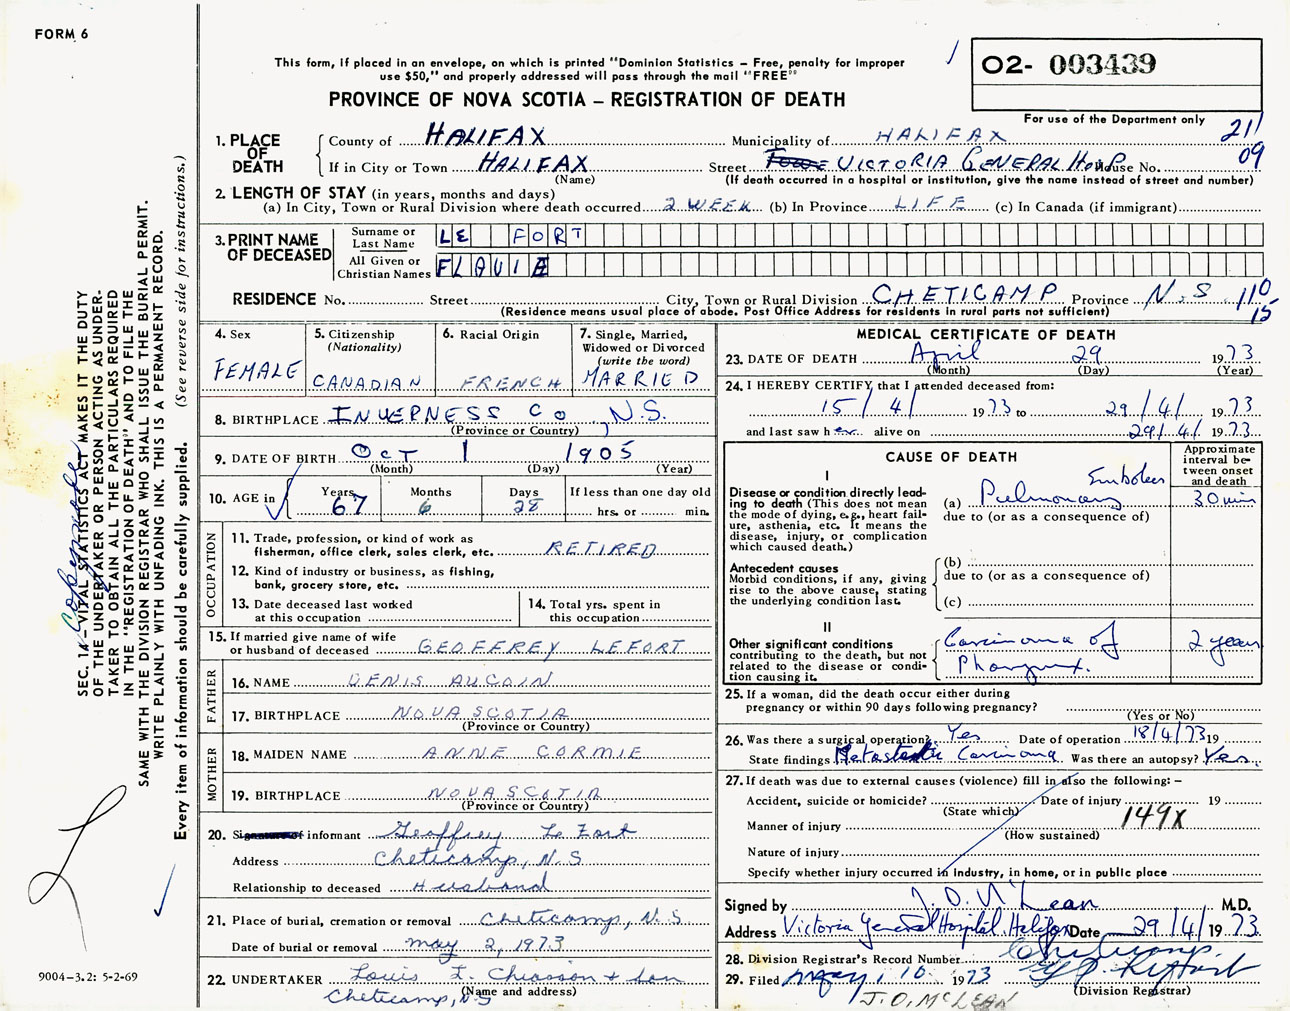 FORM 6
This form, if placed in an envelope, on which is printed "Dominion Statistics – Free, penalty for improper
use $50," and properly addressed will pass through the mail "FREE"
PROVINCE OF NOVA SCOTIA – REGISTRATION OF DEATH
02- 003439
For use of the Department only
211
09
1. PLACE OF DEATH
County of HALIFAX Municipality of HALIFAX
If in City or Town HALIFAX Street VICTORIA GENERAL HOSP House No.
(Name) (If death occurred in a hospital or institution, give the name instead of street and number)
2. LENGTH OF STAY (in years, months and days)
(a) In City, Town or Rural Division where death occurred 2 WEEK (b) In Province LIFE (c) In Canada (if immigrant)
3. PRINT NAME OF DECEASED
Surname or Last Name LE FORT
All Given or Christian Names FLAVIE
RESIDENCE No. Street City, Town or Rural Division CHETICAMP Province N.S. 110
15
(Residence means usual place of abode. Post Office Address for residents in rural parts not sufficient)
4. Sex FEMALE
5. Citizenship (Nationality) CANADIAN
6. Racial Origin FRENCH
7. Single, Married, Widowed or Divorced (write the word) MARRIED
8. BIRTHPLACE INVERNESS CO, N.S.
(Province or Country)
9. DATE OF BIRTH OCT 1 1905
(Month) (Day) (Year)
10. AGE in Years 67 Months 6 Days 28 If less than one day old
hrs. or min.
OCCUPATION
11. Trade, profession, or kind of work as
fisherman, office clerk, sales clerk, etc. RETIRED
12. Kind of industry or business, as fishing,
bank, grocery store, etc.
13. Date deceased last worked
at this occupation
14. Total yrs. spent in
this occupation
15. If married give name of wife
or husband of deceased GEOFFREY LEFORT
FATHER
16. NAME DENIS AUCOIN
17. BIRTHPLACE NOVA SCOTIA
(Province or Country)
MOTHER
18. MAIDEN NAME ANNE CORMIE
19. BIRTHPLACE NOVA SCOTIA
(Province or Country)
20. Signature of informant Geoffrey Le Fort
Address Cheticamp, N.S
Relationship to deceased Husband
21. Place of burial, cremation or removal Cheticamp, N.S
Date of burial or removal may 2, 1973
22. UNDERTAKER Louis L. Chiasson + Son
(Name and address)
Cheticamp, N.S
MEDICAL CERTIFICATE OF DEATH
23. DATE OF DEATH April 29 1973
(Month) (Day) (Year)
24. I HEREBY CERTIFY that I attended deceased from:
15/4/ 1973 to 29/4/ 1973
and last saw her alive on 29/4/ 1973
CAUSE OF DEATH
Approximate interval between onset and death
I
Disease or condition directly leading
to death (This does not mean
the mode of dying, e.g., heart failure,
asthenia, etc. It means the
disease, injury, or complication
which caused death.)
(a) Pulmonary Embolus 30 min
due to (or as a consequence of)
Antecedent causes
Morbid conditions, if any, giving
rise to the above cause, stating
the underlying condition last.
(b)
due to (or as a consequence of)
(c)
II
Other significant conditions
contributing to the death, but not
related to the disease or condition
causing it.
Carcinoma of 2 years
Pharynx.
25. If a woman, did the death occur either during
pregnancy or within 90 days following pregnancy?
(Yes or No)
26. Was there a surgical operation? Yes Date of operation 18/4/73 19
State findings Metastatic Carcinoma Was there an autopsy? Yes.
27. If death was due to external causes (violence) fill in also the following: –
Accident, suicide or homicide? Date of injury 19
(State which)
Manner of injury 149X
(How sustained)
Nature of injury
Specify whether injury occurred in industry, in home, or in public place
Signed by J. O. McLean M.D.
Address Victoria General Hospital, Halifax Date 29/4/ 1973.
28. Division Registrar's Record Number
29. Filed May, 10 1973
(Division Registrar)
J.O. McLEAN
SEC. 14 –VITAL STATISTICS ACT MAKES IT THE DUTY
OF THE UNDERTAKER OR PERSON ACTING AS UNDERTAKER
TO OBTAIN ALL THE PARTICULARS REQUIRED
IN THE "REGISTRATION OF DEATH" AND TO FILE THE
SAME WITH THE DIVISION REGISTRAR WHO SHALL ISSUE THE BURIAL PERMIT.
WRITE PLAINLY WITH UNFADING INK. THIS IS A PERMANENT RECORD.
Every item of information should be carefully supplied. (See reverse side for instructions.)
9004–3.2: 5-2-69